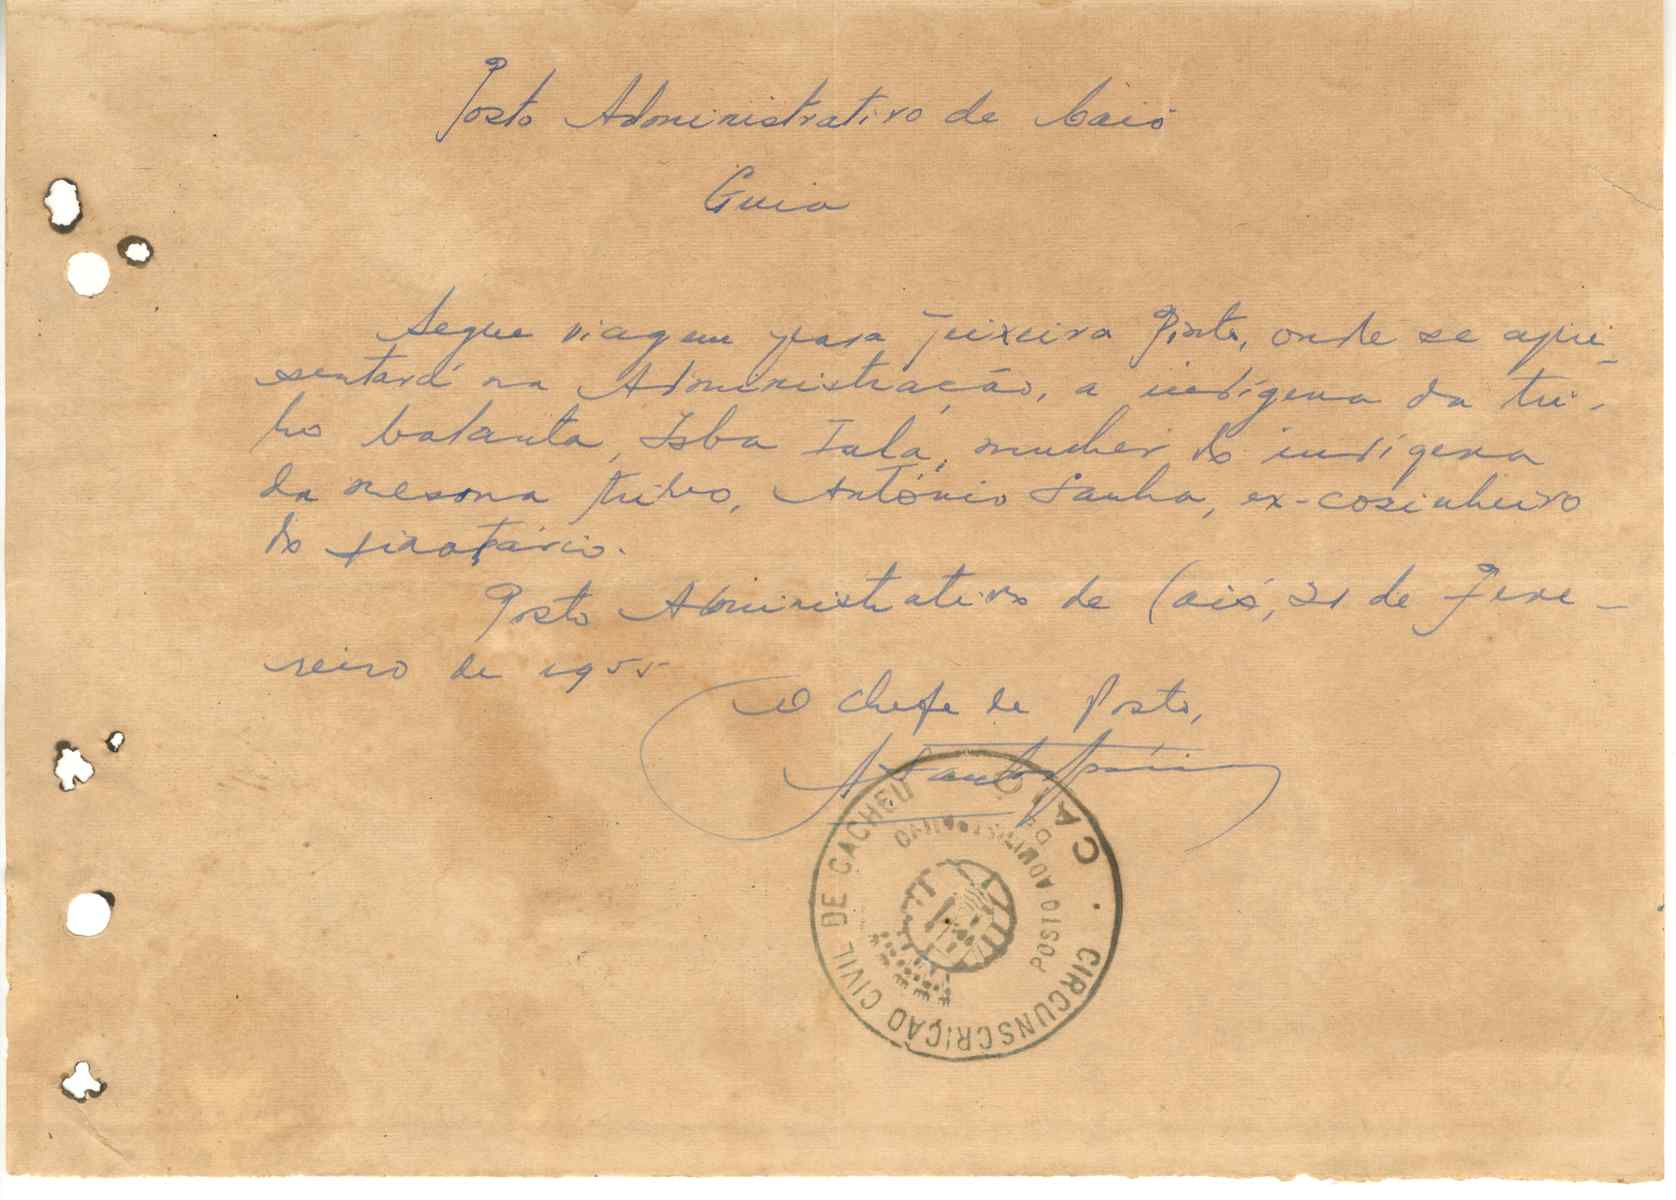 Posto Administrativo de Caió
Guia
Segue viagem para Teixeira Pinto, onde se apre-
sentará na Administração, a indígena da tri-
bo balanta, Isba Iala, mulher do indígena
da mesma tribo, António Sanha, ex-cosinheiro
do
Posto Administrativo de Caió, 21 de Feve-
reiro de 1955
O Chefe de Posto,
CIRCUNSCRIÇÃO CIVIL DE CACHEU
POSTO ADMINISTRATIVO DE
CAIO